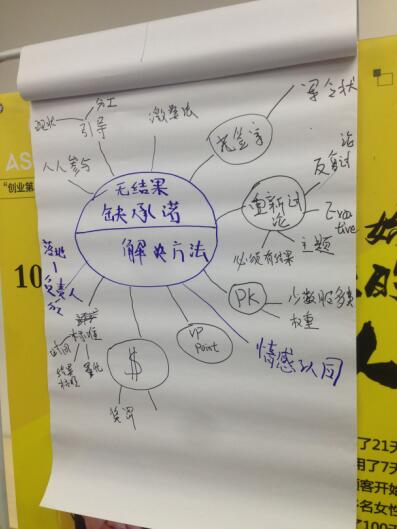 分工
现状
引导
激励法
先签字
军令状
人人参与
无结果
缺承诺
解决方法
重新讨论
主题
必须有结果
落地
负责人
PK
少数服多数
权重
VP
Point
情感认同
标准
时间
结果
量化
$
奖罚
AS
"创业第
10
了21天
用了7天
顾客开始
多名女性
了100天